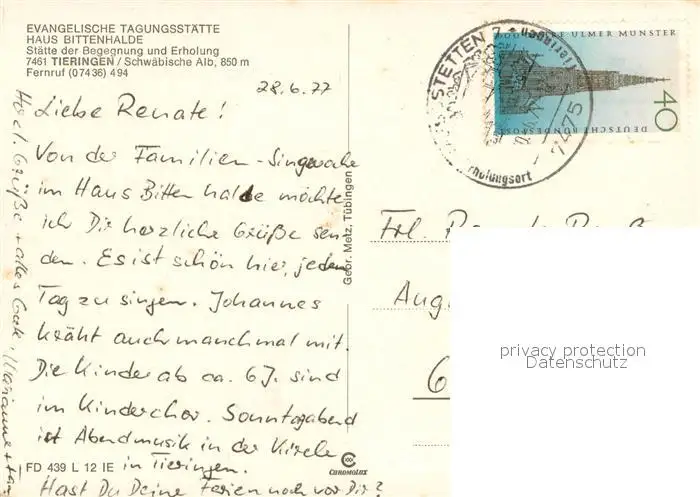 EVANGELISCHE TAGUNGSSTÄTTE
HAUS BITTENHALDE
Stätte der Begegnung und Erholung
7461 TIERINGEN / Schwäbische Alb, 850 m
Fernruf (07436) 494
28.6.77
Liebe Renate!
Von der Familien-Singwoche
im Haus Bittenhalde möchte
ich Dir herzliche Grüße sen
den. Es ist schön hier, jeden
Tag zu singen. Johannes
kräht auch manchmal mit.
Die Kinder ab ca. 6 J. sind
im Kinderchor. Sonntagabend
ist Abendmusik in der Kirche
in Tieringen.
Hast Du Deine Ferien noch vor Dir?
Herzl. Grüße + alles Gute, Marianne +
FD 439 L 12 IE
CHROMOLUX
Geor. Metz, Tübingen
STETTEN 7
Tieringen
7475
Erholungsort
600 JAHRE ULMER MÜNSTER
DEUTSCHE BUNDESPOST
40
Frl.
Aug
6
privacy protection
Datenschutz